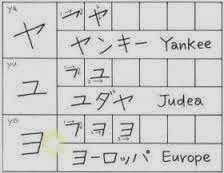 ya
ヤ フ ヤ
ヤンキー Yankee
yu
ユ フ ユ
ユダヤ Judea
yo
ヨ フ ヲ ヨ
ヨーロッパ Europe